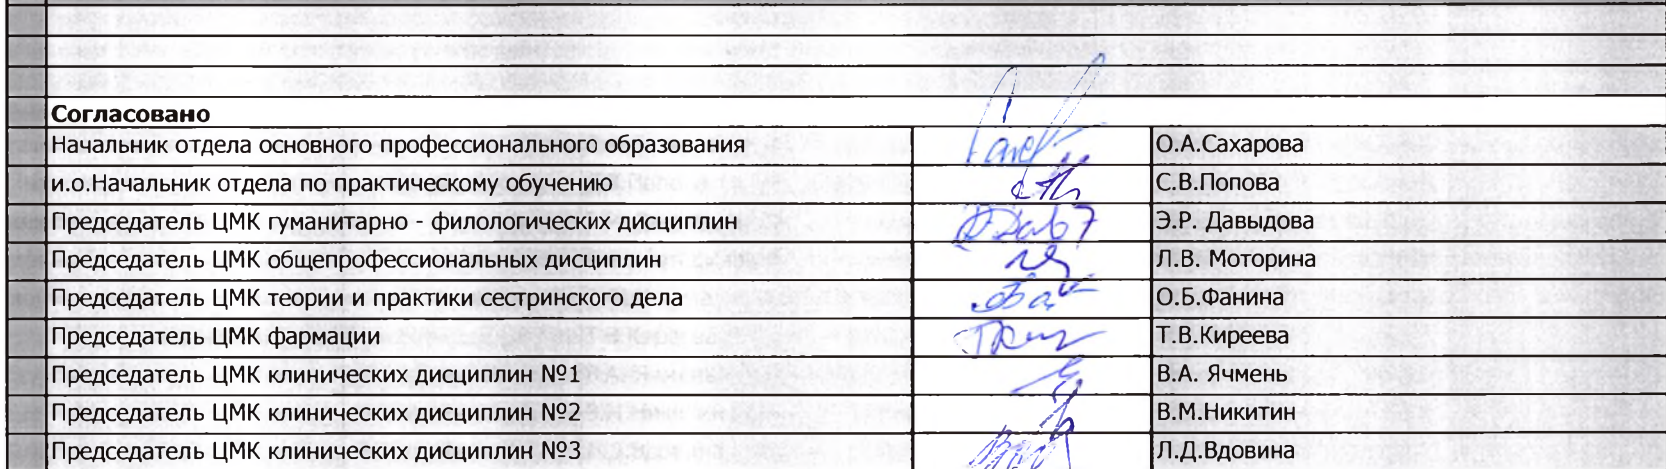 Согласовано
Начальник отдела основного профессионального образования О.А.Сахарова
и.о.Начальник отдела по практическому обучению С.В.Попова
Председатель ЦМК гуманитарно - филологических дисциплин Э.Р. Давыдова
Председатель ЦМК общепрофессиональных дисциплин Л.В. Моторина
Председатель ЦМК теории и практики сестринского дела О.Б.Фанина
Председатель ЦМК фармации Т.В.Киреева
Председатель ЦМК клинических дисциплин №1 В.А. Ячмень
Председатель ЦМК клинических дисциплин №2 В.М.Никитин
Председатель ЦМК клинических дисциплин №3 Л.Д.Вдовина